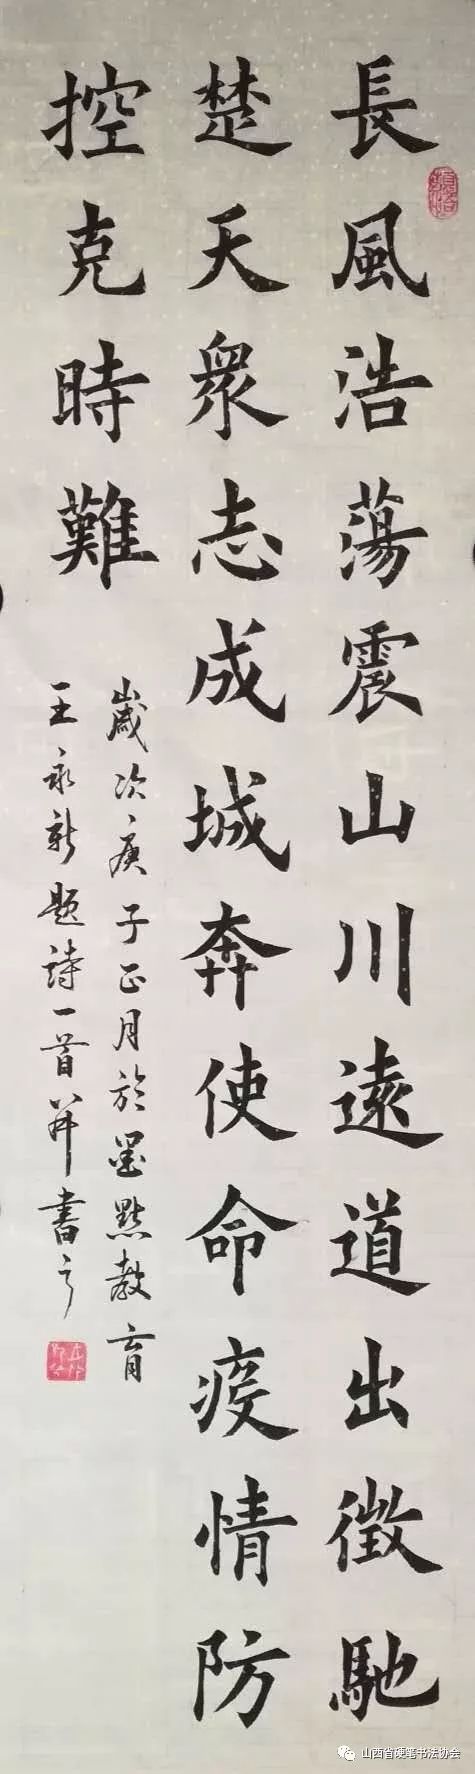 長風浩蕩震山川遠道出徵馳
楚天衆志成城奔使命疫情防
控克時難
歲次庚子正月於墨點教育
王永新題詩一首并書之
山西省硬笔书法协会